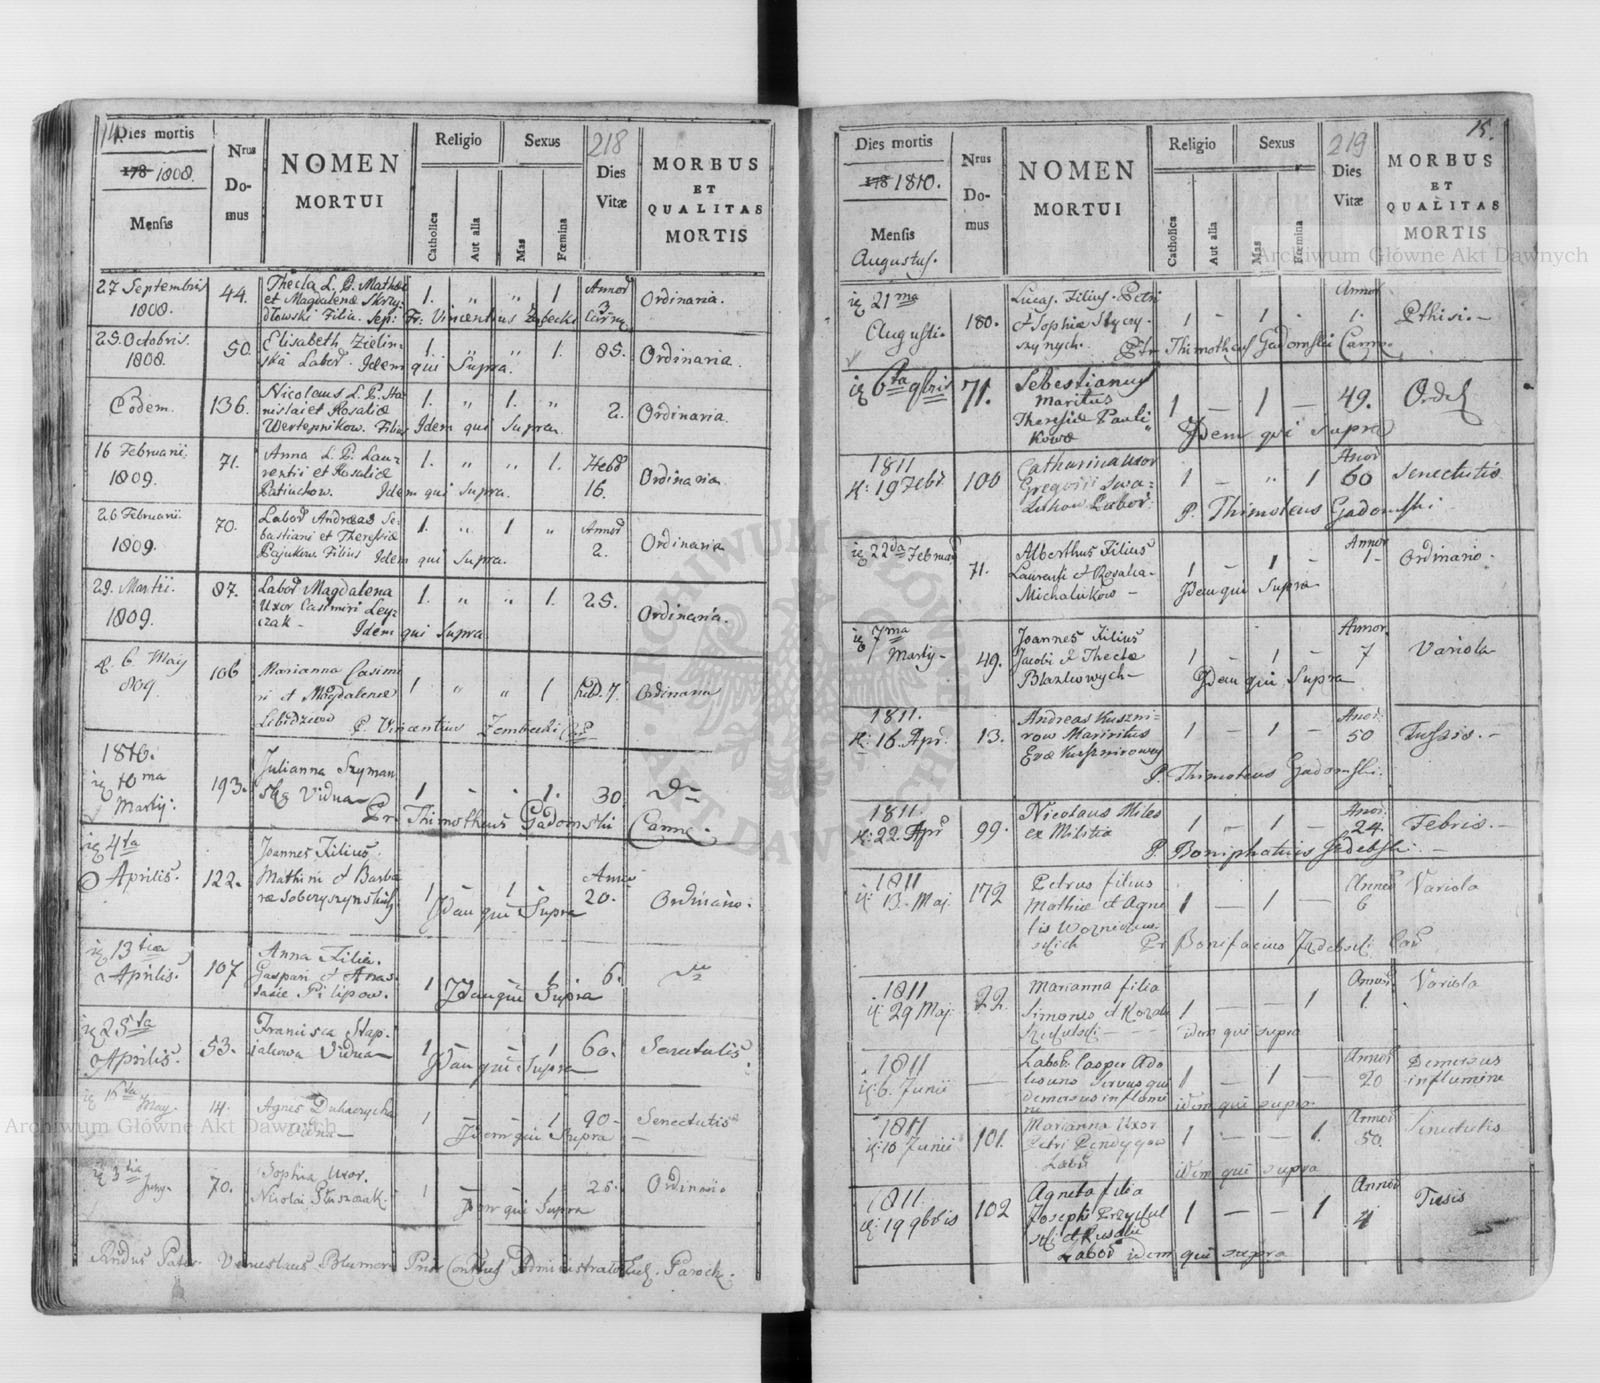 14.
Dies mortis
178 1808.
Mensis
Nrus
Do-
mus
NOMEN
MORTUI
Religio
Catholica
Aut alia
Sexus
Mas
Fœmina
218
Dies
Vitæ
MORBUS
ET
QUALITAS
MORTIS
27 Septembris
1808.
44.
Thecla L. C. Mathæi
et Magdalenæ Skrzy-
dłowski Filia. Sepi: Fr: Vincentius
1. " " 1
Annor
3
Ordinaria.
25. Octobris.
1808.
50.
Elisabeth Zielin-
ska Labor. Idem qui Supra.
1. " " 1.
85.
Ordinaria.
Eodem.
136.
Nicolaus L. C. Sta-
nislai et Rosaliæ
Wertepnikow. Filius Idem qui Supra.
1. " 1. "
2.
Ordinaria.
16 Februarii
1809.
71.
Anna L. C. Lau-
rentii et Rosaliæ
Idem qui Supra.
1. " " 1.
Hebd
16.
Ordinaria
26 Februarii.
1809.
70.
Labor Andreas Se-
bastiani et Theresiæ
Pajukow. Filius Idem qui Supra.
1. " 1 "
Annor
2.
Ordinaria
29. Martii.
1809.
87.
Labor Magdalena
Uxor Casimiri Ley-
czak - Idem qui Supra
1. " " 1.
25.
Ordinaria.
d. 6. May
809.
106
Marianna Casimi
ri et Magdalenæ
P. Vincentius Zembecki
1 " " 1
hebd. 7.
Ordinaria
1810.
10ma
Martij.
193.
Julianna Szyman
ska Vidua
Pr. Thimotheus Gadomski Canne.
1 - - 1.
30
4ta
Aprilis.
122.
Joannes Filius
Mathiæ et Barba
ræ Soberszynskich
Idem qui Supra
1 - 1 -
20.
Ordinario.
13tia
Aprilis.
107
Anna Filia.
Gaspari et Anas-
tasie Pilipow.
1 Idem qui Supra
6.
25ta
Aprilis.
53.
Francisca Stap-
Vidua
Idem qui Supra
1 - - 1
60.
Senectutis
May.
14.
Agnes
Vidua
Idem qui Supra
1 - - 1
90-
Senectutis
3tia
70.
Sophia Uxor.
Nicolai
Idem qui Supra
1 - - 1
25.
Ordinario
Rndus Pater Prior Administrator
15.
Dies mortis
178 1810.
Mensis
Augustus.
Nrus
Do-
mus
NOMEN
MORTUI
Religio
Catholica
Aut alia
Sexus
Mas
Fœmina
219
Dies
Vitæ
MORBUS
ET
QUALITAS
MORTIS
21ma
Augusti.
180.
Lucas. Filius. Petri
et Sophiæ Styczy-
szynych.
Ptr. Thimotheus Gadomski Canne.
1 - 1 -
Annor
1.
Pthisi.-
6ta 9bris
71.
Sebestianus
Maritus
Theresiæ Pauli
kowæ
Idem qui supra
1 - 1 -
49.
1811
19 Febr
100
Catharina uxor
Gregorii
Labor.
P. Thimoteus Gadomski
1 - " 1
Anor
60
Senectutis
22da Februar
71.
Alberthus Filius
Laurenti et Rosalia-
Michalukow -
Idem qui Supra
1 - 1 -
Annor
1-
Ordinario.
7ma
Martij-
49.
Joannes Filius
Jacobi et Theclæ
Blazlowych-
Idem qui Supra
1 - 1 -
Annor.
7
Variola
1811.
16. Apr.
13.
Andreas Kuszni-
row Mariritus
Evæ Kusznirowey
P. Thimoteus Gadomski.
1 - 1 -
Anor.
50
Tussis.-
1811.
22 Apr
99.
Nicolaus Miles
ex Militia
P. Boniphatius
1 - 1 -
Anor.
24.
Febris.-
1811
13. Maj.
172
Petrus filius
Mathiæ et Agne
tis
Pr Bonifacius
1 - 1 -
Annor
6
Variola
1811
29 Maj.
22.
Marianna filia
Simonis et Rozalie
idem qui supra
1 - - 1
Annor
1.
Variola
1811
6. Junii
-
Labor. Casper Ado
Servus qui
demersus in flumi
ne
idem qui supra
1 - 1 -
Annor
20
Demersus
in flumine
1811
10 Junii
101.
Marianna Uxor
Petri
Labr
idem qui supra
1 - - 1.
Annor
50.
Senectutis
1811.
19 9bris
102
Agneta filia
Josephi
et Rosalie
Labor idem qui supra
1 - - 1
Annor
4
Tusis
Archiwum Główne Akt Dawnych
Archiwum Główne Akt Dawnych
ARCHIWUM GŁÓWNE AKT DAWNYCH